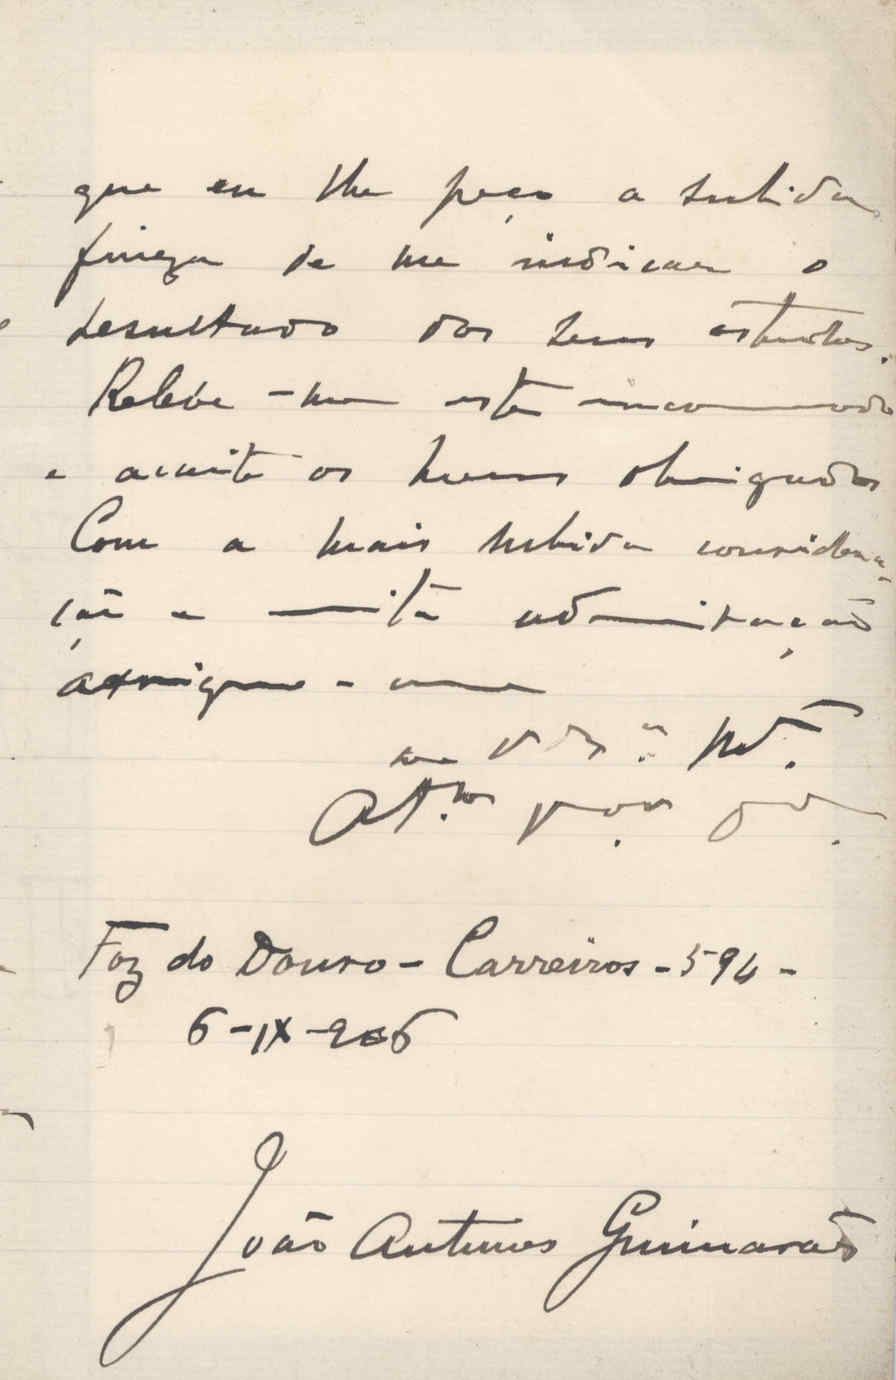 que eu lhe peço a subida
fineza de me indicar o
resultado dos seus estudos.
Releve-me este incommodo
e acceite os meus obrigados
Com a mais subida considera-
ção e mitª admiração
assigno-me
de V. Exª
Attº
Foz do Douro - Carreiros - 594 -
6-IX-906
João Antunes Guimarães